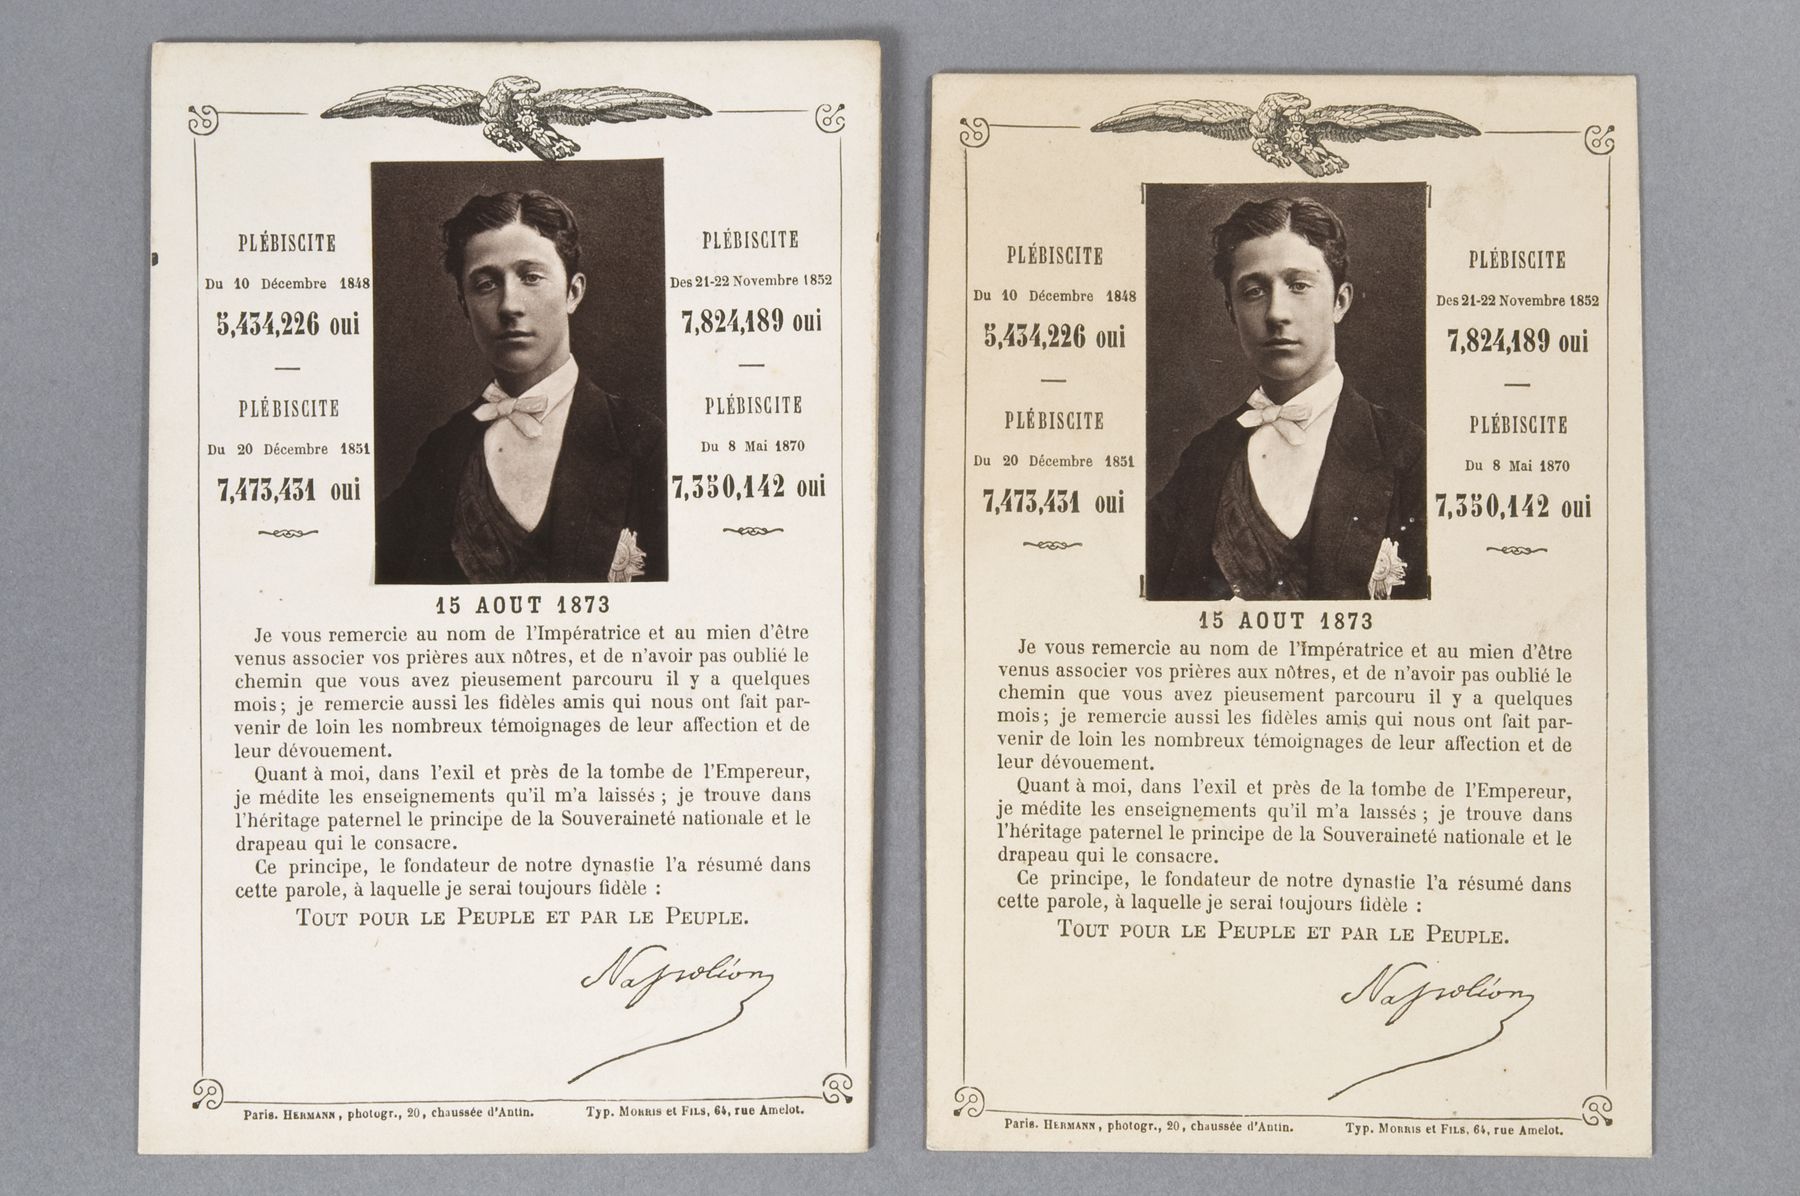 PLÉBISCITE
Du 10 Décembre 1848
5,434,226 oui
PLÉBISCITE
Du 20 Décembre 1851
7,473,431 oui
PLÉBISCITE
Des 21-22 Novembre 1852
7,824,189 oui
PLÉBISCITE
Du 8 Mai 1870
7,350,142 oui
15 AOUT 1873
Je vous remercie au nom de l'Impératrice et au mien d'être
venus associer vos prières aux nôtres, et de n'avoir pas oublié le
chemin que vous avez pieusement parcouru il y a quelques
mois; je remercie aussi les fidèles amis qui nous ont fait par-
venir de loin les nombreux témoignages de leur affection et de
leur dévouement.
Quant à moi, dans l'exil et près de la tombe de l'Empereur,
je médite les enseignements qu'il m'a laissés; je trouve dans
l'héritage paternel le principe de la Souveraineté nationale et le
drapeau qui le consacre.
Ce principe, le fondateur de notre dynastie l'a résumé dans
cette parole, à laquelle je serai toujours fidèle :
TOUT POUR LE PEUPLE ET PAR LE PEUPLE.
Napoléon
Paris. HERMANN, photogr., 20, chaussée d'Antin.
Typ. MORRIS et FILS, 64, rue Amelot.
PLÉBISCITE
Du 10 Décembre 1848
5,434,226 oui
PLÉBISCITE
Du 20 Décembre 1851
7,473,431 oui
PLÉBISCITE
Des 21-22 Novembre 1852
7,824,189 oui
PLÉBISCITE
Du 8 Mai 1870
7,350,142 oui
15 AOUT 1873
Je vous remercie au nom de l'Impératrice et au mien d'être
venus associer vos prières aux nôtres, et de n'avoir pas oublié le
chemin que vous avez pieusement parcouru il y a quelques
mois; je remercie aussi les fidèles amis qui nous ont fait par-
venir de loin les nombreux témoignages de leur affection et de
leur dévouement.
Quant à moi, dans l'exil et près de la tombe de l'Empereur,
je médite les enseignements qu'il m'a laissés; je trouve dans
l'héritage paternel le principe de la Souveraineté nationale et le
drapeau qui le consacre.
Ce principe, le fondateur de notre dynastie l'a résumé dans
cette parole, à laquelle je serai toujours fidèle :
TOUT POUR LE PEUPLE ET PAR LE PEUPLE.
Napoléon
Paris. HERMANN, photogr., 20, chaussée d'Antin.
Typ. MORRIS et FILS, 64, rue Amelot.